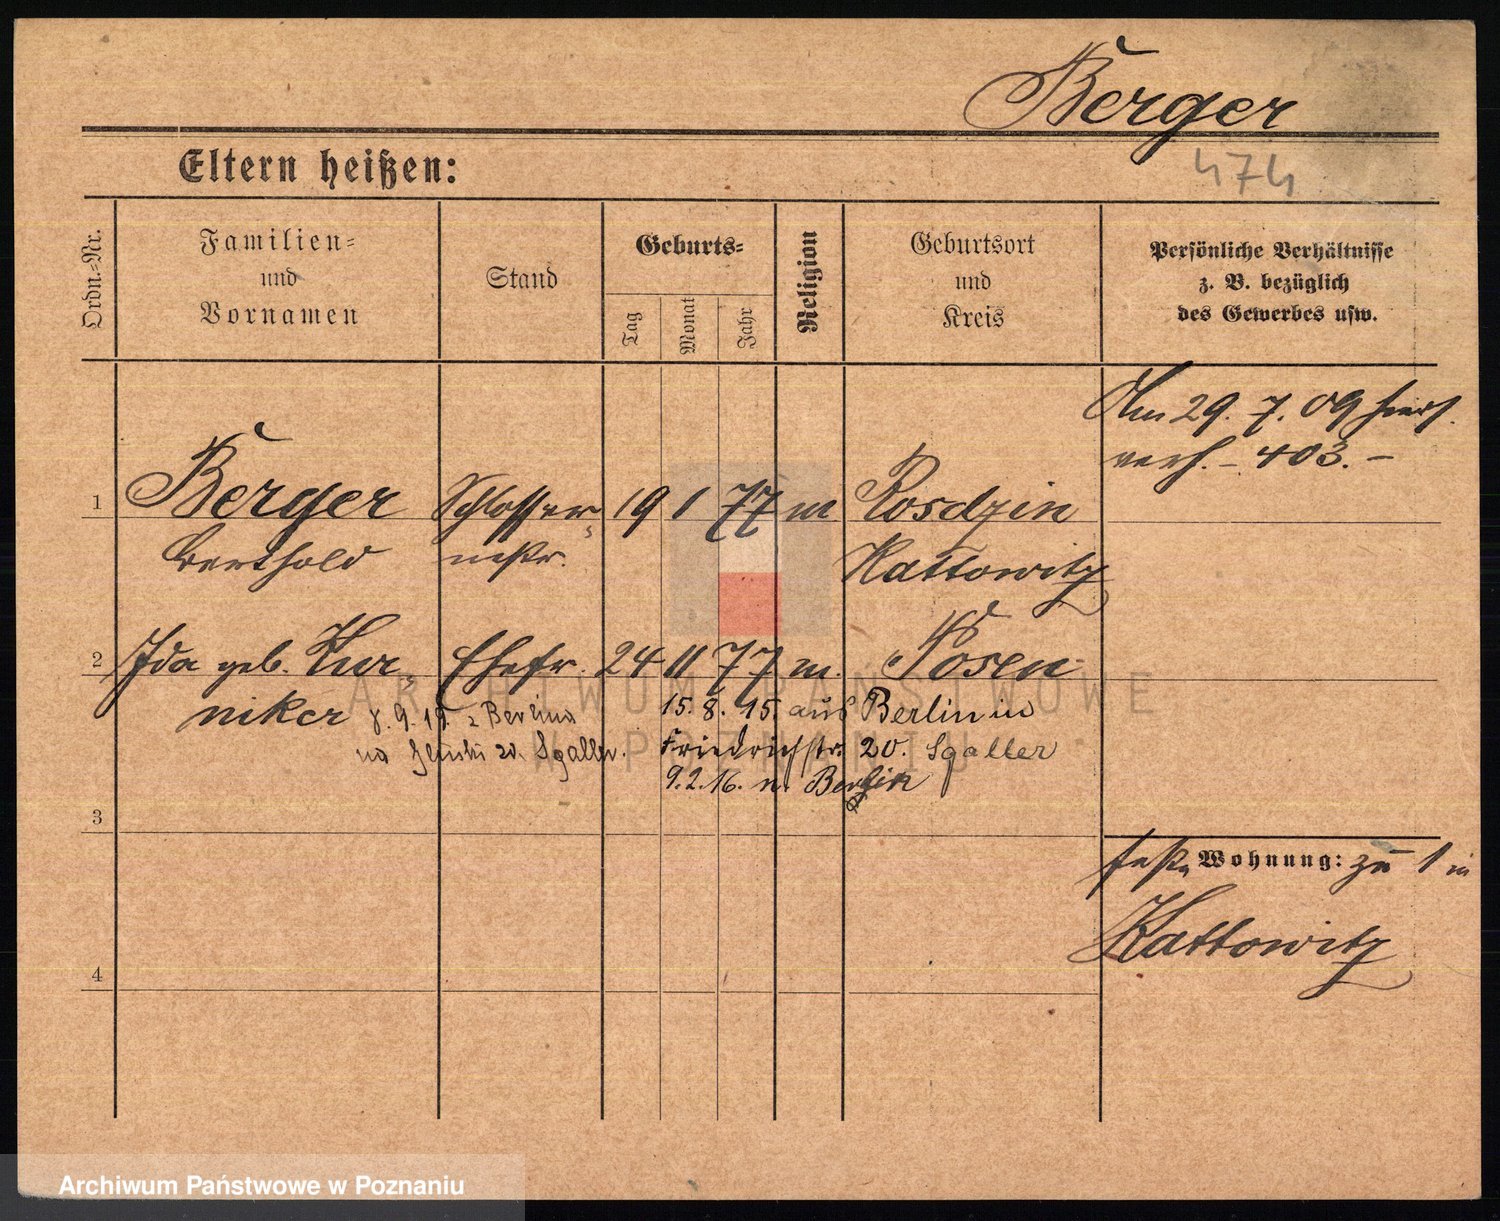 Berger
Eltern heißen:
474
Ordn.-Nr.
Familien-
und
Vornamen
Stand
Geburts-
Tag
Monat
Jahr
Religion
Geburtsort
und
Kreis
Persönliche Verhältnisse
z. B. bezüglich
des Gewerbes usw.
Am 29. 7. 09 hier
verh. – 403. –
1 Berger Schlosser- 19 1 77 m Rosdzin
Berthold mstr. Kattowitz
2 Ida geb. Kur- Ehefr. 24 11 77 m. Posen
niker 8. 9. 19. z Berlina
na 20. Sgaller.
15. 8. 15. aus Berlin in
Friedrichstr. 20. Sgaller
9. 2. 16. n. Berlin
3
Wohnung: zu 1 in
Kattowitz
4
ARCHIWUM PAŃSTWOWE
W POZNANIU
Archiwum Państwowe w Poznaniu